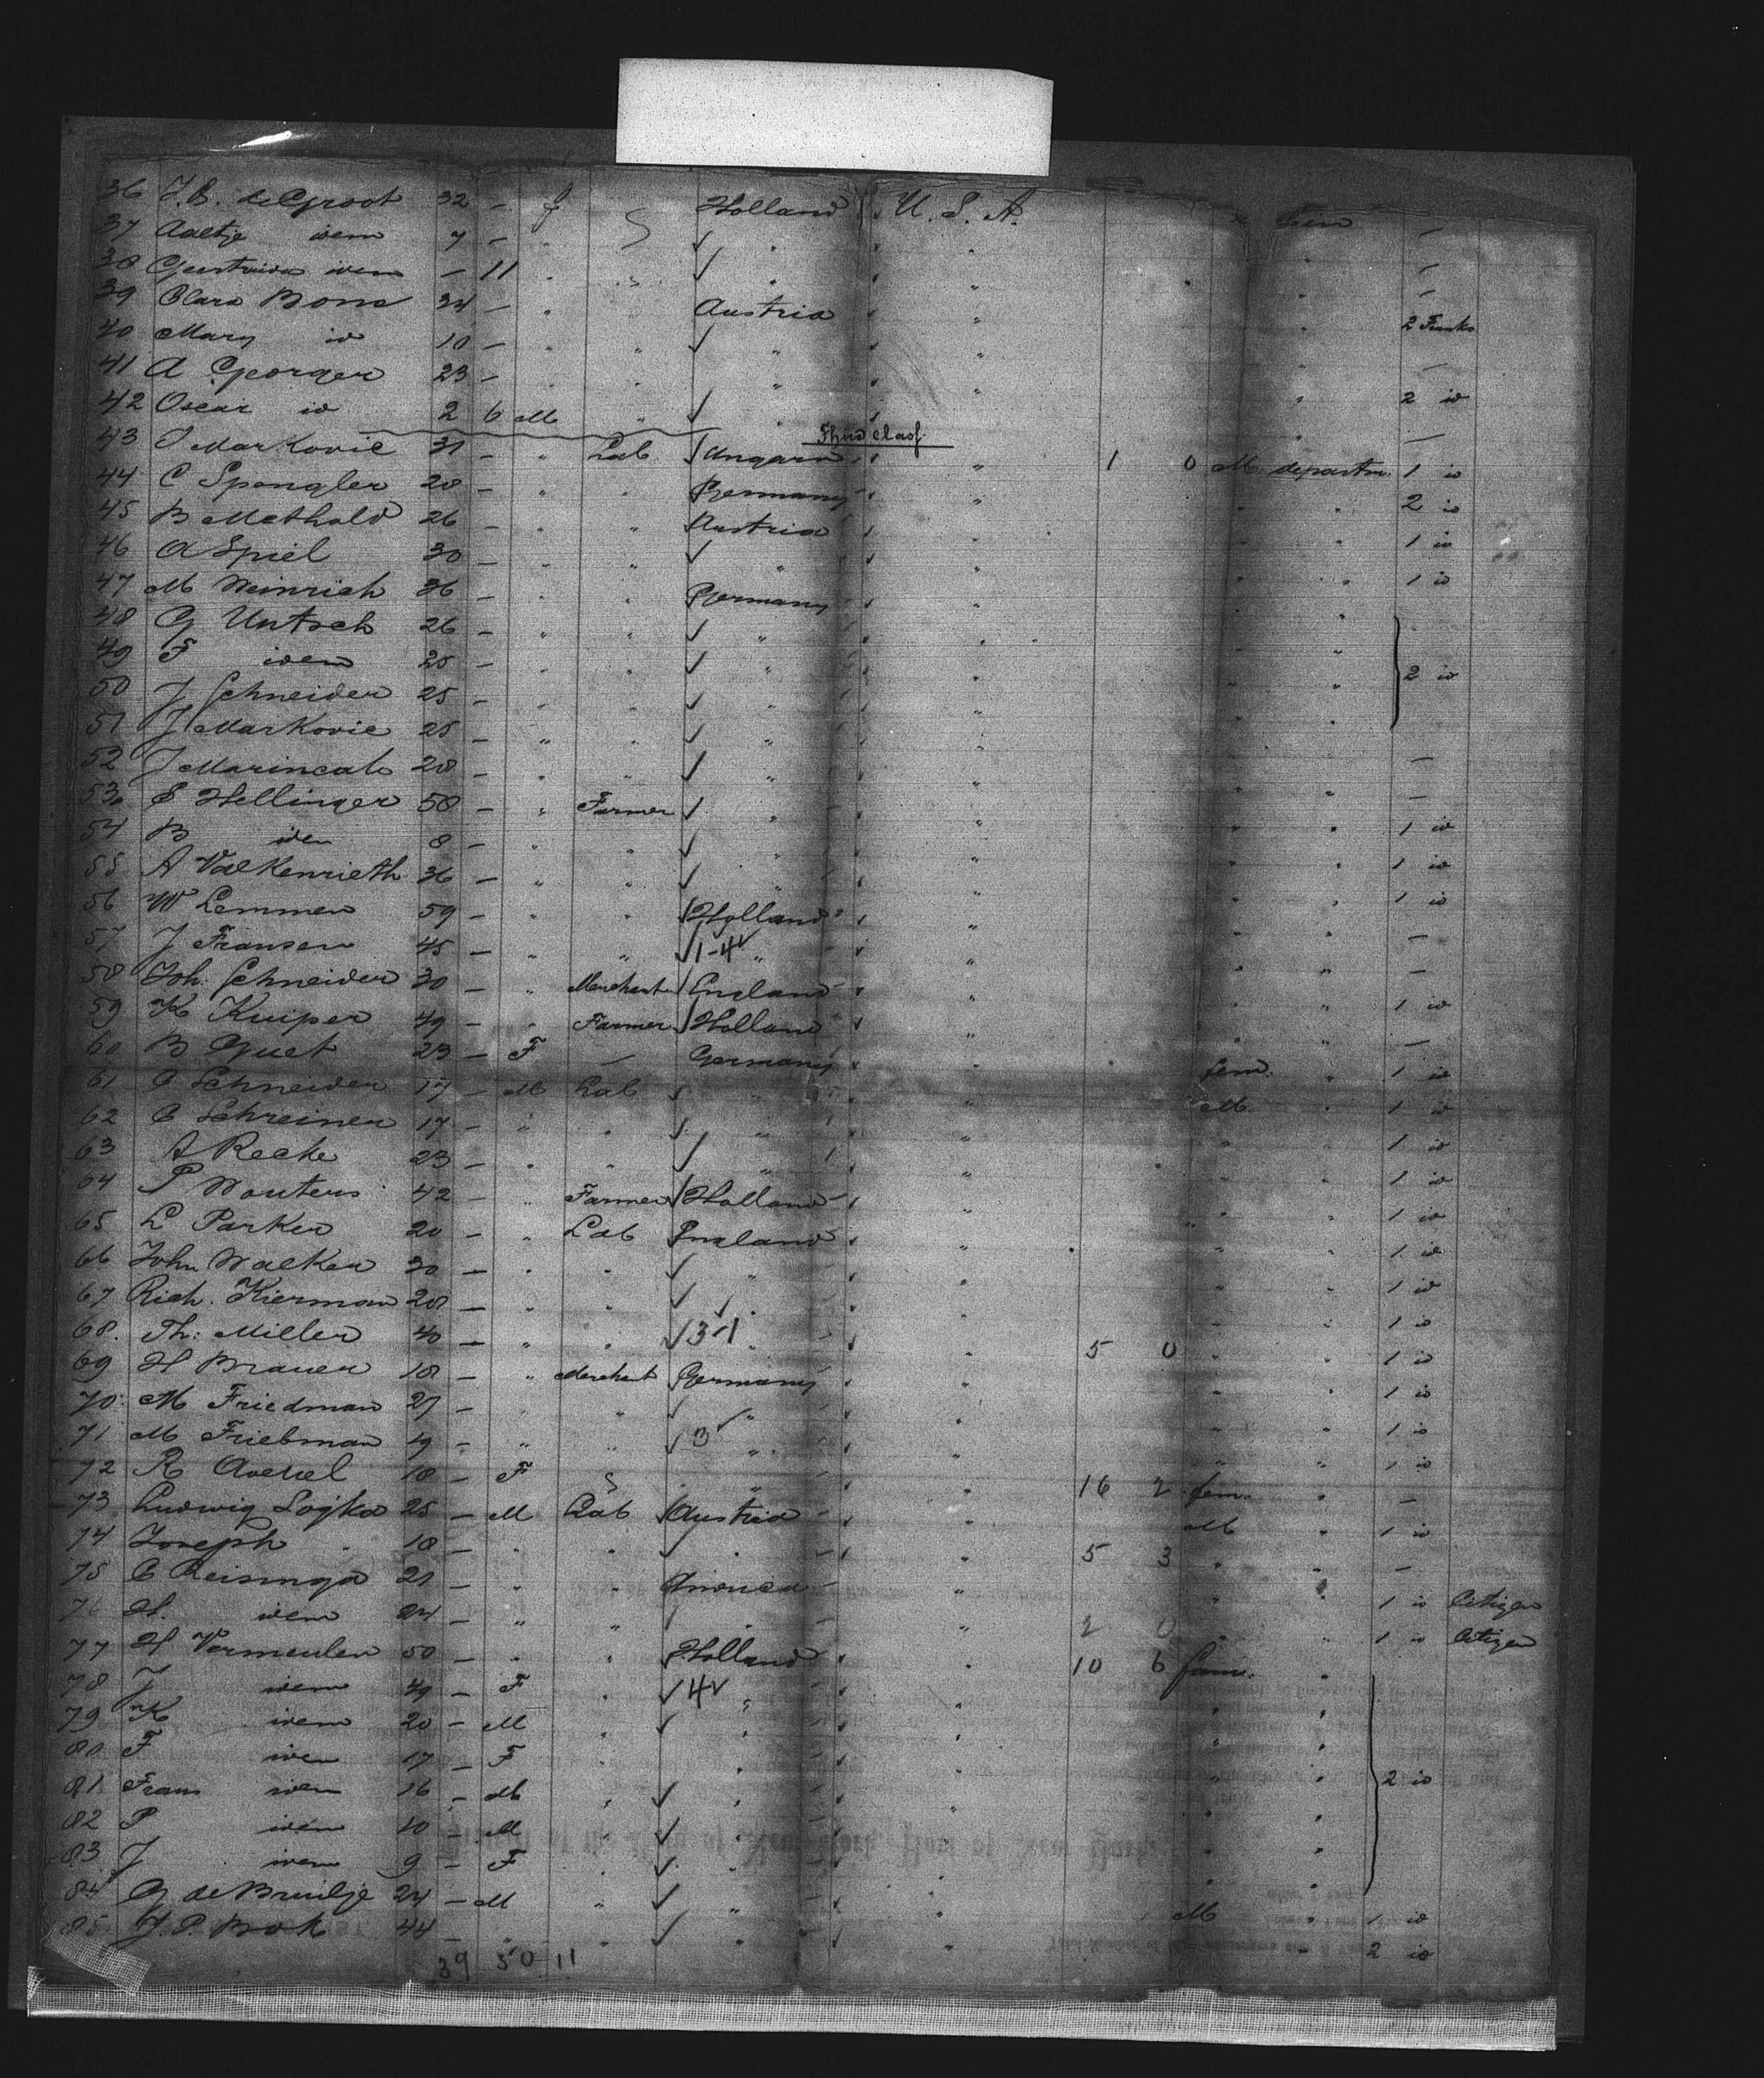 36 J.B. de Groot 32 — f Holland U. S. A. —
37 Aaltje idem 7 — " ✓ " " —
38 Geertruida idem — 11 " ✓ " " —
39 Clara Bona 34 — " Austria " 2 Trunks
40 Mary id 10 — " " ✓ " —
41 A Georger 23 — " " " " 2 id
42 Oscar id 2 6 M " ✓ " —
Third Class
43 Markovic 31 — " Lab Ungarn " 1 0 M. departm. 1 id
44 C Spengler 28 — " " Germany " " 2 id
45 B Methold 26 — " " Austria " " 1 id
46 A Spiel 30 — " " ✓ " " 1 id
47 M Weinrich 36 — " " Germany " "
48 G Untsch 26 — " " ✓ " "
49 F idem 25 — " " ✓ " " 2 id
50 J Schneider 25 — " " ✓ " "
51 J Markovic 25 — " " ✓ " " —
52 J Marincab 28 — " " ✓ " " —
53 S Hellinger 58 — " Farmer ✓ " " 1 id
54 B idem 8 — " " ✓ " " 1 id
55 A Valkenrieth 36 — " " ✓ " " 1 id
56 W Lemmen 59 — " " Holland " —
57 J Fransen 45 — " " ✓ 1-4 ✓ " " —
58 Joh. Schneider 30 — " Merchant England " 1 id
59 K Kuiper 49 — " Farmer Holland " —
60 B Guet 23 — F — Germany " fem. " 1 id
61 C Schneider 17 — M Lab ✓ " " M. " 1 id
62 C Schreiner 17 — " " ✓ " " 1 id
63 A Recke 23 — " " ✓ " " 1 id
64 P Wouters 42 — " Farmer Holland " 1 id
65 L Parker 20 — " Lab England " 1 id
66 John Walker 30 — " " ✓ " " 1 id
67 Rich. Kierman 28 — " " ✓ " " 1 id
68. Th: Miller 40 — " " ✓ 3-1 " " 5 0 " 1 id
69 H Brauer 18 — " Merchant Germany " 1 id
70 M Friedman 27 — " " ✓ " " 1 id
71 M Friebman 19 — " " ✓ 3 ✓ " " 1 id
72 R 18 — F " " 16 2 fem. " —
73 Ludwig Lojka 25 — M Lab Austria " M " 1 id
74 Joseph " 18 — " " ✓ " " 5 3 " —
75 C Reisinga 21 — " " America " " 1 id Citizen
76 H. idem 24 — " " " " 2 0 " 1 id Citizen
77 H Vermeulen 50 — " " Holland " 10 6 fam. "
78 J idem 49 — F " ✓ 4 ✓ " "
79 K idem 20 — M " ✓ " "
80 F idem 17 — F " "
81 Frans idem 16 — M " ✓ " " 2 id
82 P idem 10 — M " ✓ "
83 J idem 9 — F " ✓ "
84 G de Bruilje 24 — M " ✓ " " M " 1 id
85 J. P. Brok 44 — " " ✓ " " 2 id
39 50 11